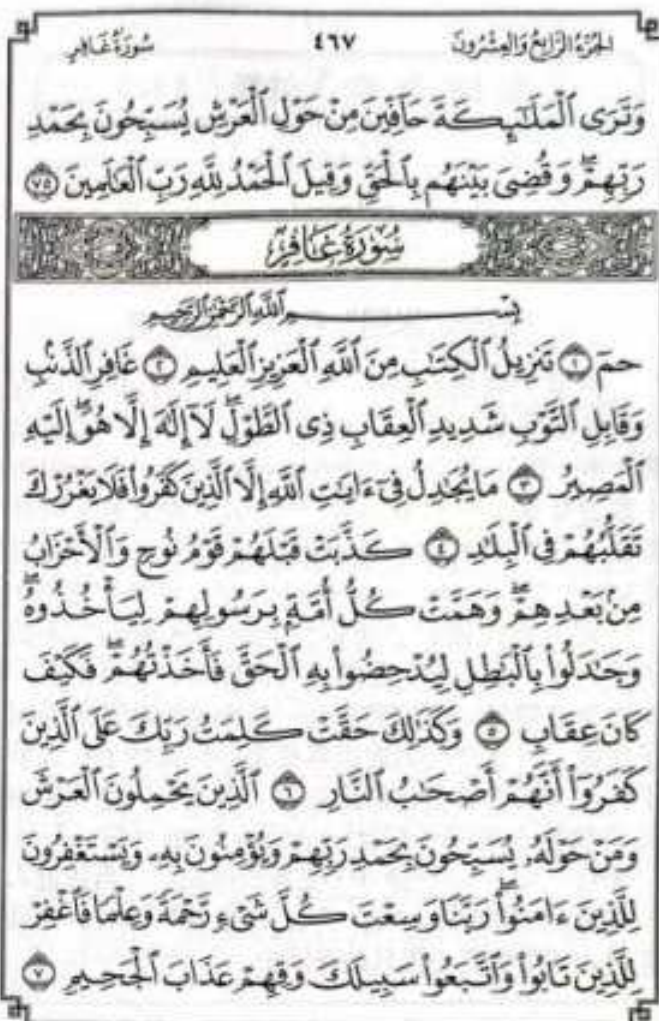 الجزء الرابع والعشرون ٤٦٧ سورة غافر
وَتَرَى ٱلْمَلَـٰٓئِكَةَ حَآفِّينَ مِنْ حَوْلِ ٱلْعَرْشِ يُسَبِّحُونَ بِحَمْدِ
رَبِّهِمْ ۖ وَقُضِىَ بَيْنَهُم بِٱلْحَقِّ وَقِيلَ ٱلْحَمْدُ لِلَّهِ رَبِّ ٱلْعَـٰلَمِينَ ٧٥
سُورَةُ غَافِرٍ
بِسْمِ ٱللَّهِ ٱلرَّحْمَـٰنِ ٱلرَّحِيمِ
حمٓ ١ تَنزِيلُ ٱلْكِتَـٰبِ مِنَ ٱللَّهِ ٱلْعَزِيزِ ٱلْعَلِيمِ ٢ غَافِرِ ٱلذَّنۢبِ
وَقَابِلِ ٱلتَّوْبِ شَدِيدِ ٱلْعِقَابِ ذِى ٱلطَّوْلِ ۖ لَآ إِلَـٰهَ إِلَّا هُوَ ۖ إِلَيْهِ
ٱلْمَصِيرُ ٣ مَا يُجَـٰدِلُ فِىٓ ءَايَـٰتِ ٱللَّهِ إِلَّا ٱلَّذِينَ كَفَرُوا۟ فَلَا يَغْرُرْكَ
تَقَلُّبُهُمْ فِى ٱلْبِلَـٰدِ ٤ كَذَّبَتْ قَبْلَهُمْ قَوْمُ نُوحٍ وَٱلْأَحْزَابُ
مِنۢ بَعْدِهِمْ ۖ وَهَمَّتْ كُلُّ أُمَّةٍۭ بِرَسُولِهِمْ لِيَأْخُذُوهُ ۖ
وَجَـٰدَلُوا۟ بِٱلْبَـٰطِلِ لِيُدْحِضُوا۟ بِهِ ٱلْحَقَّ فَأَخَذْتُهُمْ ۖ فَكَيْفَ
كَانَ عِقَابِ ٥ وَكَذَٰلِكَ حَقَّتْ كَلِمَتُ رَبِّكَ عَلَى ٱلَّذِينَ
كَفَرُوٓا۟ أَنَّهُمْ أَصْحَـٰبُ ٱلنَّارِ ٦ ٱلَّذِينَ يَحْمِلُونَ ٱلْعَرْشَ
وَمَنْ حَوْلَهُۥ يُسَبِّحُونَ بِحَمْدِ رَبِّهِمْ وَيُؤْمِنُونَ بِهِۦ وَيَسْتَغْفِرُونَ
لِلَّذِينَ ءَامَنُوا۟ ۖ رَبَّنَا وَسِعْتَ كُلَّ شَىْءٍ رَّحْمَةً وَعِلْمًا فَٱغْفِرْ
لِلَّذِينَ تَابُوا۟ وَٱتَّبَعُوا۟ سَبِيلَكَ وَقِهِمْ عَذَابَ ٱلْجَحِيمِ ٧